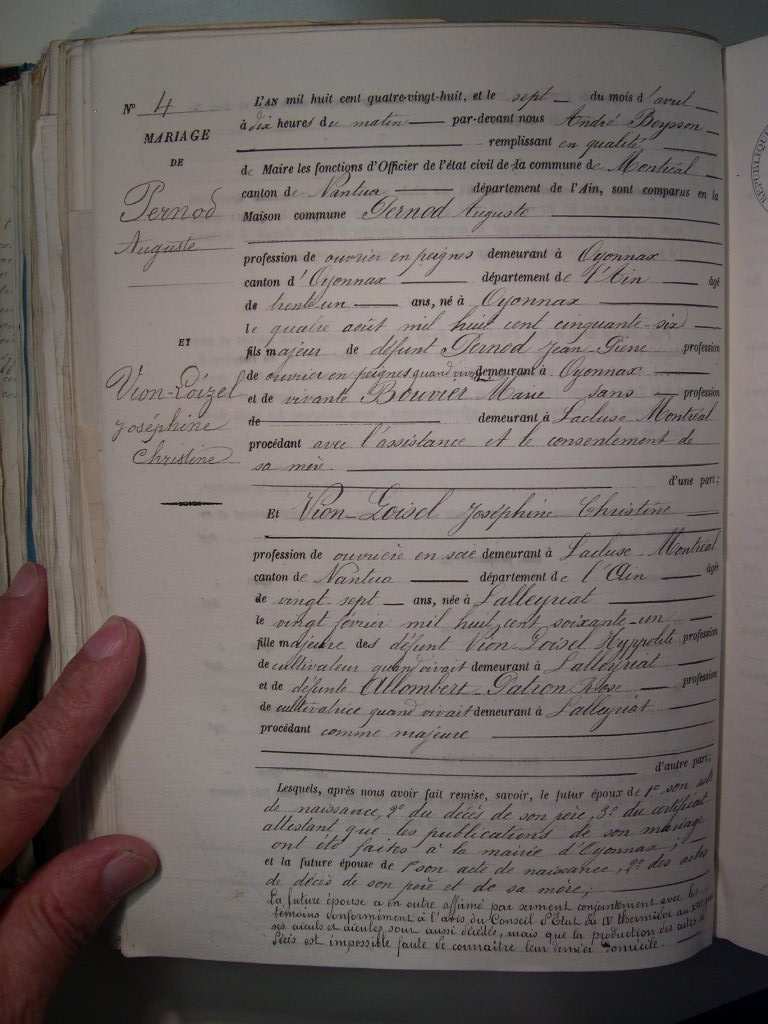 N° 4
MARIAGE
DE
Pernod
Auguste
ET
Vion-Loizel
Joséphine
Christine
L'AN mil huit cent quatre-vingt-huit, et le sept du mois d'avril
à dix heures du matin par-devant nous André Beysson
remplissant en qualité
de Maire les fonctions d'Officier de l'état civil de la commune de Montréal
canton de Nantua département de l'Ain, sont comparus en la
Maison commune Pernod Auguste
profession de ouvrier en peignes demeurant à Oyonnax
canton d'Oyonnax département de l'Ain âgé
de trente un ans, né à Oyonnax
le quatre août mil huit cent cinquante-six
fils majeur de défunt Pernod Jean-Pierre profession
de ouvrier en peignes quand vivait demeurant à Oyonnax
et de vivante Bouvier Marie sans profession
de demeurant à Lacluse-Montréal
procédant avec l'assistance et le consentement de
sa mère.
d'une part;
Et Vion-Loisel Joséphine Christine
profession de ouvrière en soie demeurant à Lacluse-Montréal
canton de Nantua département de l'Ain âgée
de vingt-sept ans, née à Lalleyriat
le vingt février mil huit cent soixante-un
fille majeure des défunt Vion-Loisel Hyppolite profession
de cultivateur quand vivait demeurant à Lalleyriat
et de défunte Allombert-Patron Rose profession
de cultivatrice quand vivait demeurant à Lalleyriat
procédant comme majeure
d'autre part;
Lesquels, après nous avoir fait remise, savoir, le futur époux de 1° son acte
de naissance, 2° du décès de son père, 3° du certificat
attestant que les publications de son mariage
ont été faites à la mairie d'Oyonnax;
et la future épouse de 1° son acte de naissance, 2° des actes
de décès de son père et de sa mère;
La future épouse a en outre affirmé par serment conjointement avec les
témoins conformément à l'avis du Conseil d'Etat du IV thermidor an XIII que
ses aïeuls et aïeules sont aussi décédés, mais que la production des actes de
décès est impossible faute de connaître leur dernier domicile.
REPUBLIQUE